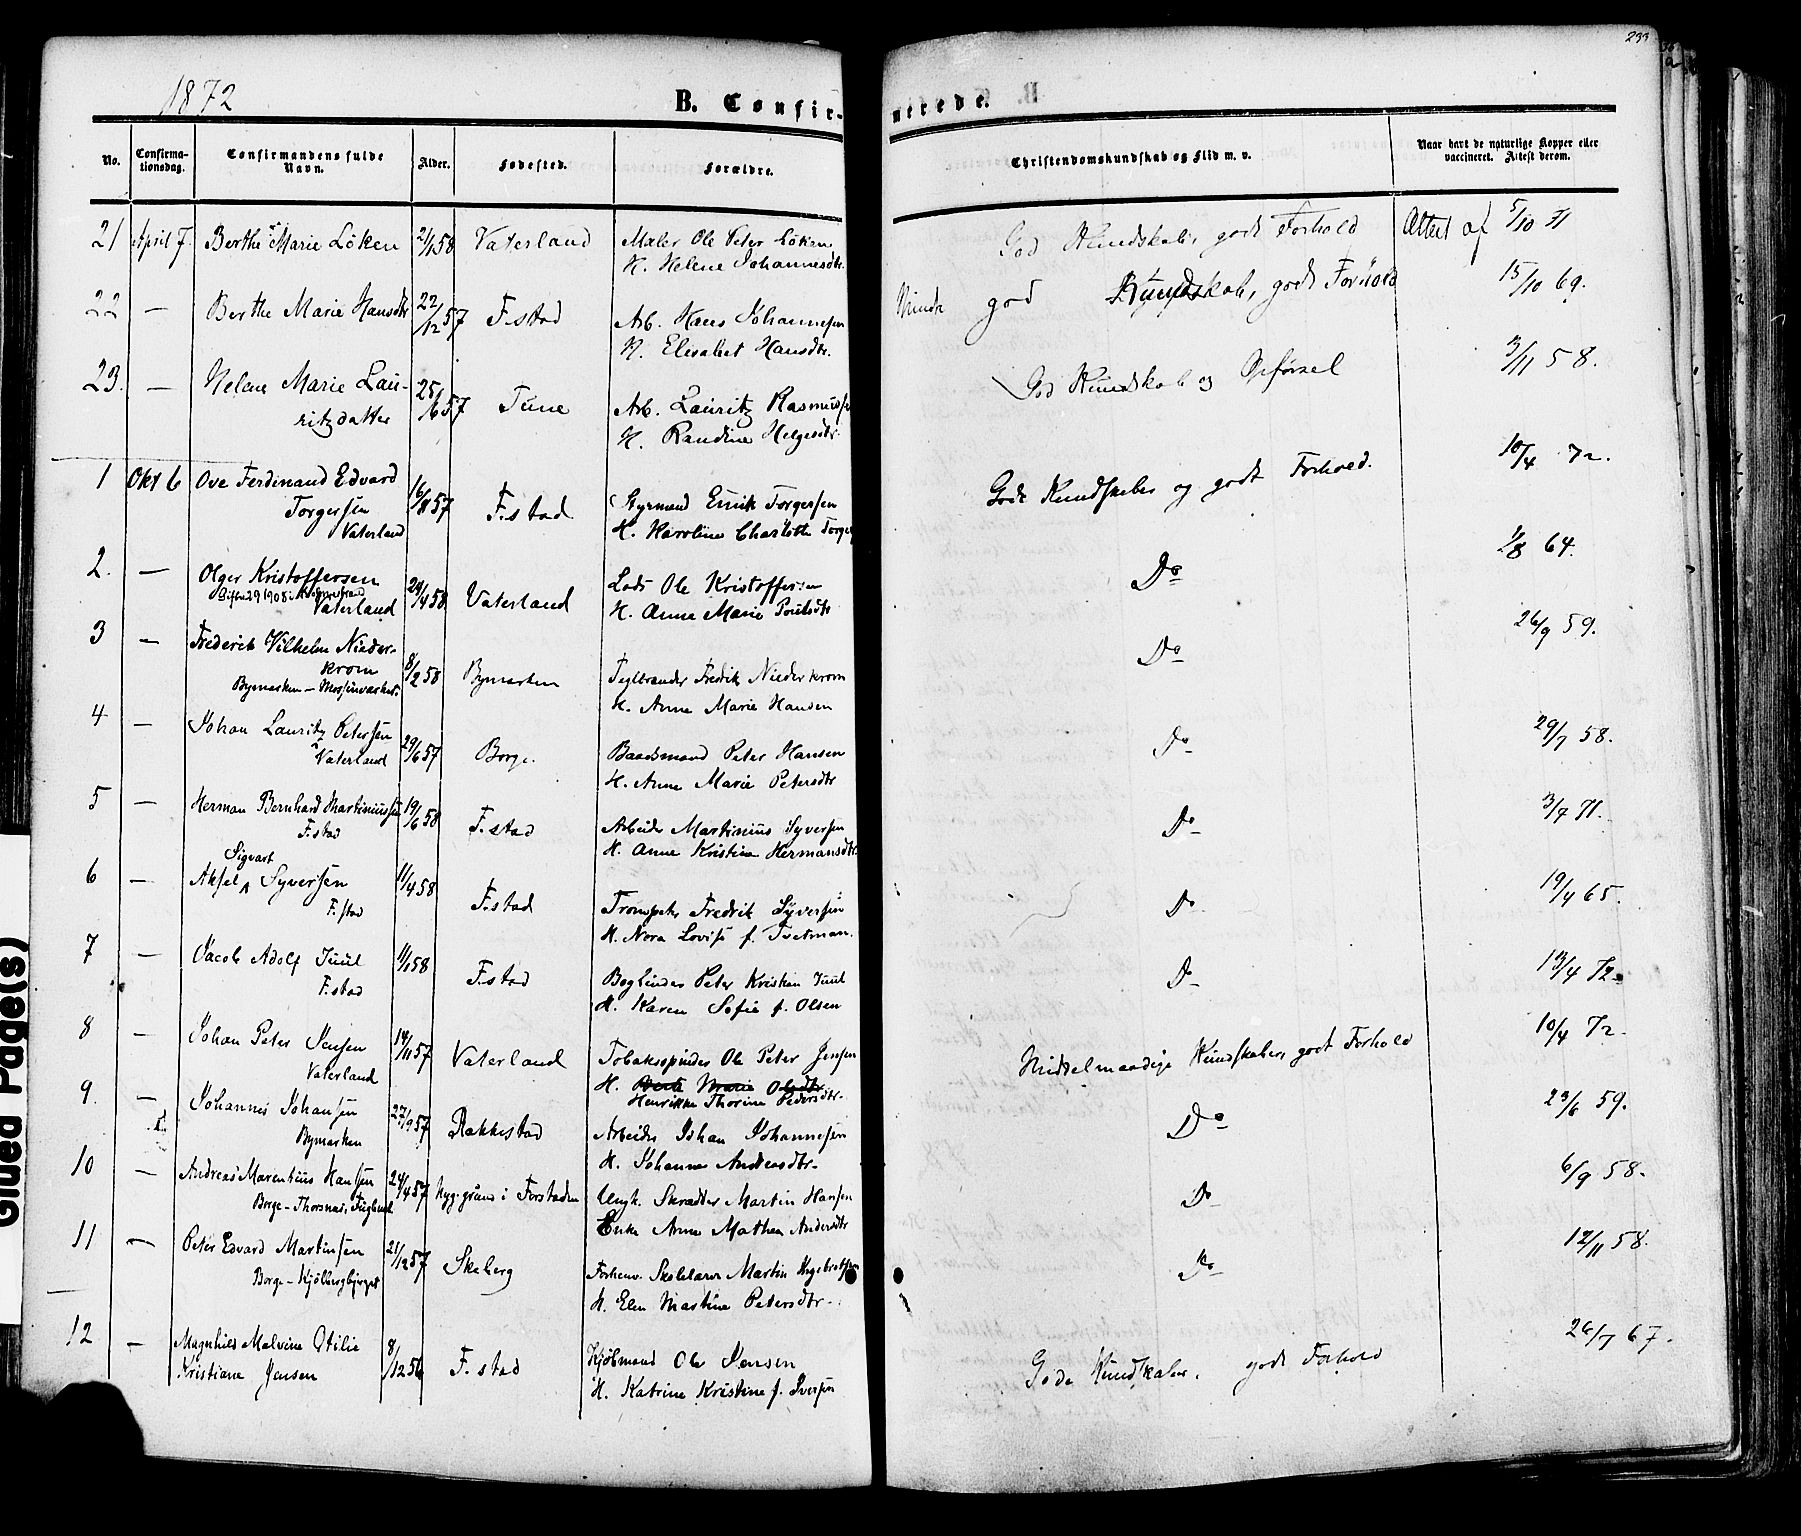 233
1872
B. Confirmerede.
No. Confirmationsdag. Confirmandens fulde Navn. Alder. Fødested. Forældre. Christendomskundskab og Flid m. v. Naar havt de naturlige Kopper eller vaccineret. Attest derom.
21 April 7. Berthe Marie Löken 2/1 58 Vaterland Maler Ole Peter Löken God Kundskab, godt Forhold Attest af 5/10 71
H. Helene Johannesdtr.
22 — Berthe Marie Hansdtr 22/12 57 F.stad Arb. Hans Johannesen Mindre god Kundskab, godt Forhold 15/10 69.
H. Elisabet Hansdtr.
23. — Helene Marie Lau- 25/6 57 Tune Arb. Lauritz Rasmuss God Kundskab og Opførsel 3/11 58.
ritzdatter H. Randine Helgesdtr.
1 Okt 6 Ove Ferdinand Edvard 16/11 57 F.stad Styrmand Emik Torgersen Gode Kundskaber og godt Forhold. 10/4 72.
Torgersen H. Karoline Charlotte Torgers
Vaterland
2. — Olger Kristoffersen 24/4 58 Vaterland Lods Ole Kristoffersen Do 64.
Vaterland H. Anne Marie Poulsdtr
3 — Frederik Vilhelm Nieder- 8/2 58 Bymarken Teglbrænder Fredrik Niederkrom Do 26/9 59.
krom H. Anne Marie Hansen
Bymarken —
4 — Johan Lauritz Petersen 29/6 57 Borge. Baadsmand Peter Hansen Do 29/7 58.
Vaterland H. Anne Marie Petersdtr
5 — Herman Bernhard Martiniussen 19/6 58 F.stad Arbeider Martinius Syversen Do 3/7 71.
F.stad H. Anne Kristine Hermansdtr.
Sigvart
6 — Aksel Syversen 11/4 58 F.stad Trompeter Fredrik Syversen Do 19/4 65.
F.stad H. Nora Lovise f. Tvetman.
7 — Jacob Adolf Juul 11/1 58 F.stad Boglinder Peter Kristian Juul Do 13/4 72.
F.stad H. Karen Sofie f. Olsen
8 — Johan Peter Jensen 14/11 57 Vaterland Tobaksspinder Ole Peter Jensen Middelmaadige Kundskaber, godt Forhold 10/4 72.
Vaterland H. Berte Marie Olsdtr
Henrikke Thorine Pedersdtr.
9. — Johannes Johansen 27/9 57 Rakkestad Arbeider Johan Johannesen Do 23/6 59.
Bymarken H. Johanne Andersdtr.
10 — Andreas Marentius Hansen 24/4 57 Myggerums i Forstaden Ungk. Skrædder Martin Hansen Do 6/9 58.
Borge - Thorsnæs, Enke Anne Mathea Andersdtr
11 — Peter Edvard Martinsen 21/12 57 Skeberg Forhenv. Skolelærer Martin Ingebretsen Do 12/11 58.
Borge - Kjölbergbjerget H. Elen Martine Petersdtr.
12 — Magnhild Malvine Otilie 8/12 56 F.stad Kjöbmand Ole Jensen Gode Kundskaber, godt Forhold 26/7 67.
Kristiane Jensen H. Katrine Kristine f. Iversen
Glued Page(s)